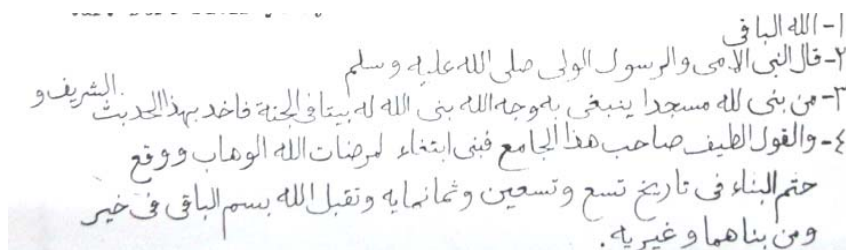 ١- الله الباقى
٢- قال النبى الامى والرسول الولى صلى الله عليه وسلم
٣- من بنى لله مسجدا ينبغى به وجه الله بنى الله له بيتا فى الجنة فاخد بهذا الحديث الشريف و
٤- والقول الطيف صاحب هذا الجامع فبنى ابتغاء لمرضات الله الوهاب ووقع
ختم البناء فى تاريخ تسع وتسعين وثمانمايه وتقبل الله بسم الباقى فى خير
ومن بناهما وغيريه.